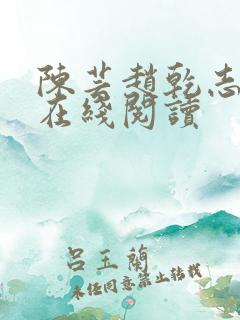 陳芸趙乾志
在綫閱讀
呂玉蘭
未经同意禁止转载